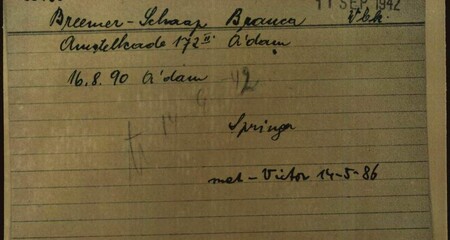 11 SEP. 1942
Breemer-Schaap Branca Vbk.
Amstelkade 172 II A'dam
16.8.90 A'dam
tr 14 9 42
Springer
met - Victor 14-5-86